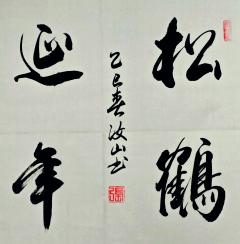 松鶴
延年
乙巳春汝山书
張